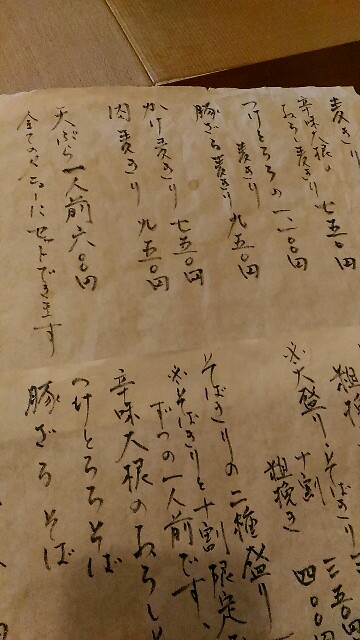 麦きり 七五〇円
辛味大根の
おろし麦きり 一一〇〇円
つけとろろの
麦きり 九五〇円
豚ざる麦きり 九五〇円
かけ麦きり 七五〇円
肉麦きり 九五〇円
天ぷら一人前 六〇〇円
全てのメニューにセットできます
粗挽
※大盛り・そばきり 三五〇円
十割 四〇〇円
粗挽き
そばきりの二種盛り
※そばきりと十割 限定
ずつの一人前です、
辛味大根のおろし
つけとろろそば
豚ざるそば